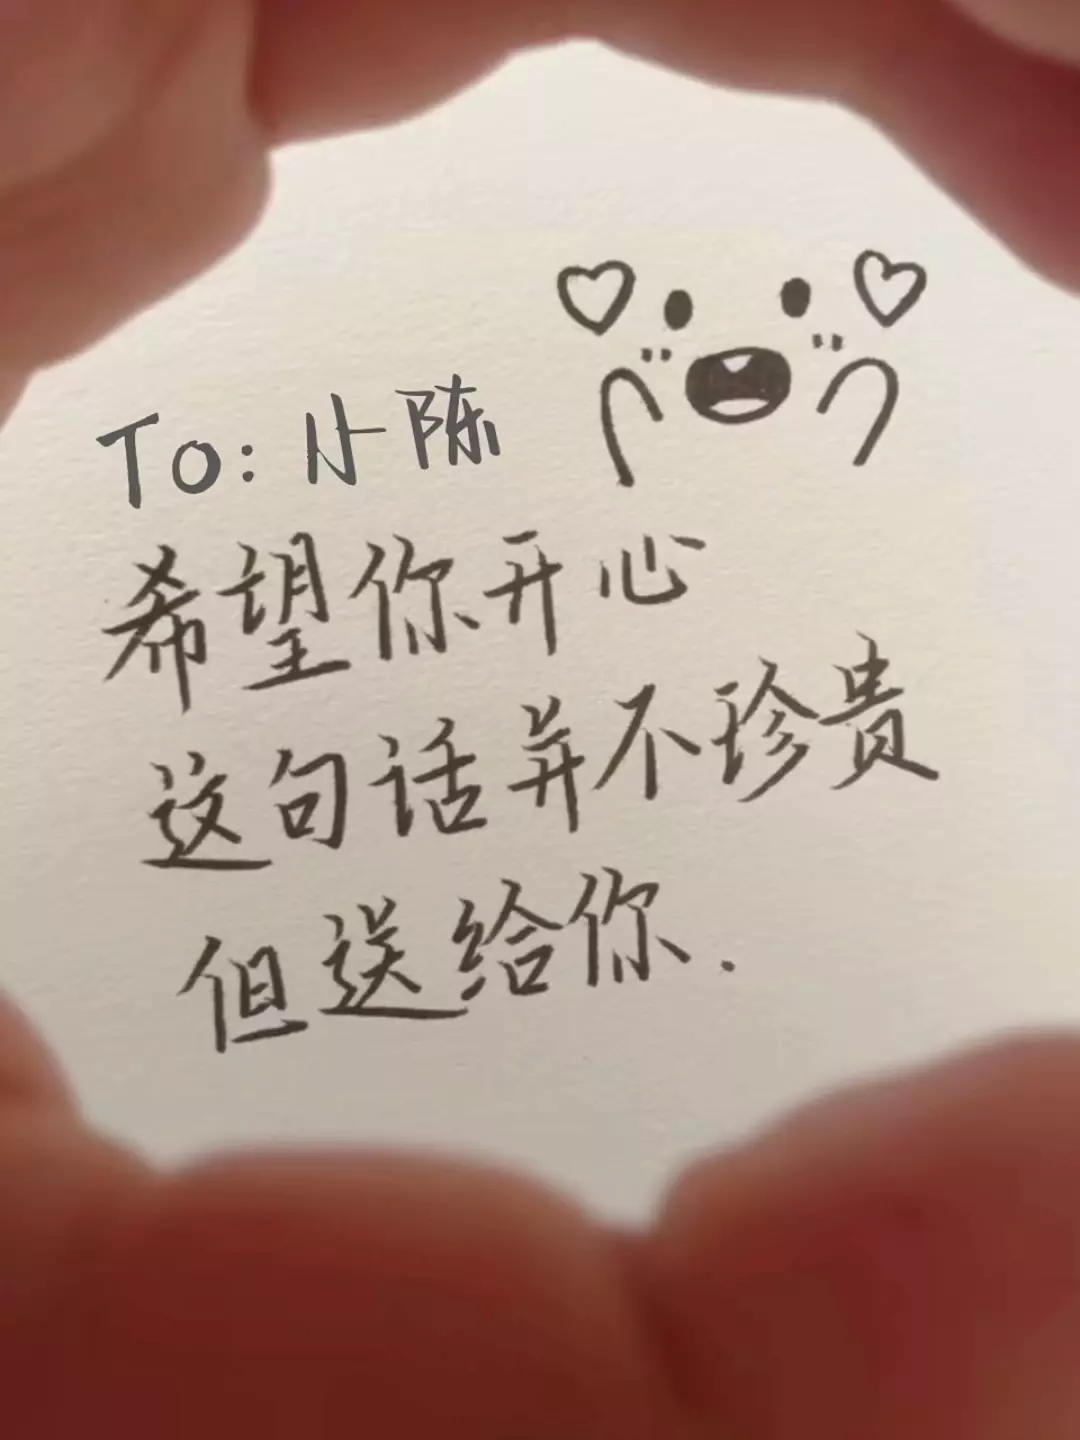 To: 小陈
希望你开心
这句话并不珍贵
但送给你.